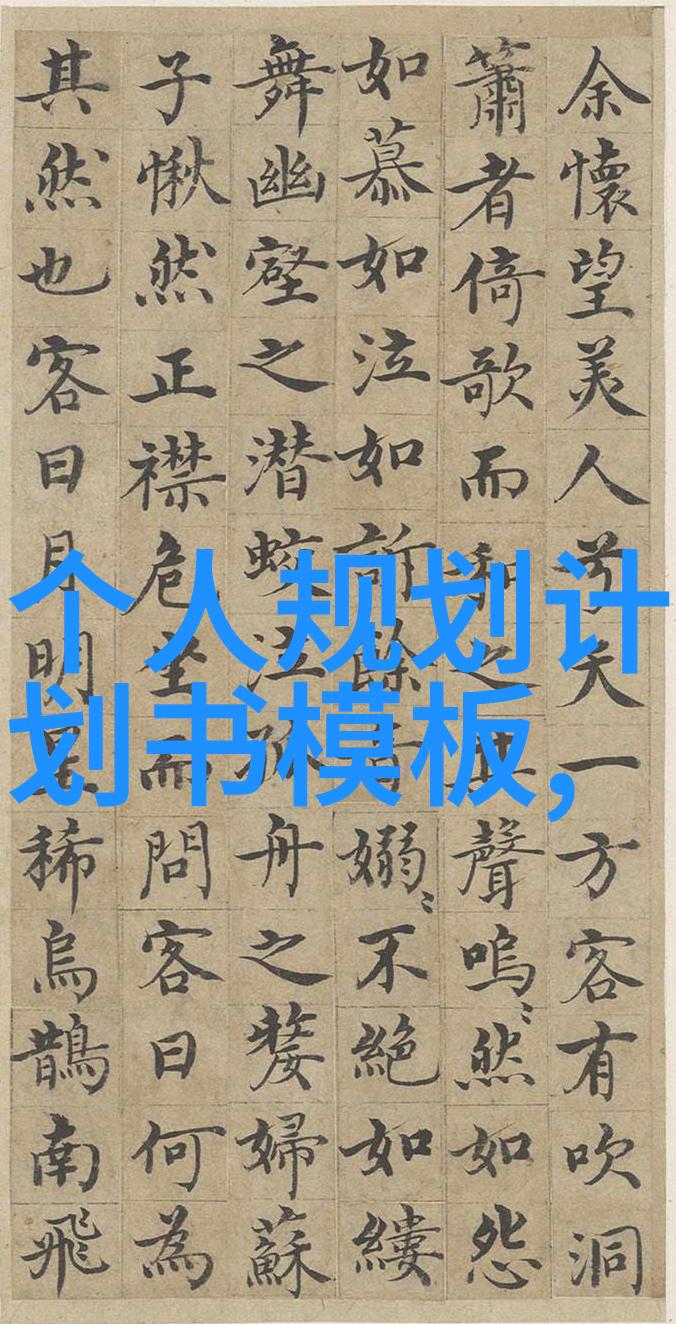 余懷望美人兮天一方客有吹洞
簫者倚歌而和之其聲嗚〻然如怨
如慕如泣如訴餘音嫋〻不絕如縷
舞幽壑之潜蛟泣孤舟之嫠婦蘇
子愀然正襟危坐而問客曰何為
其然也客曰月明星稀烏鵲南飛
个人规划计
划书模板,